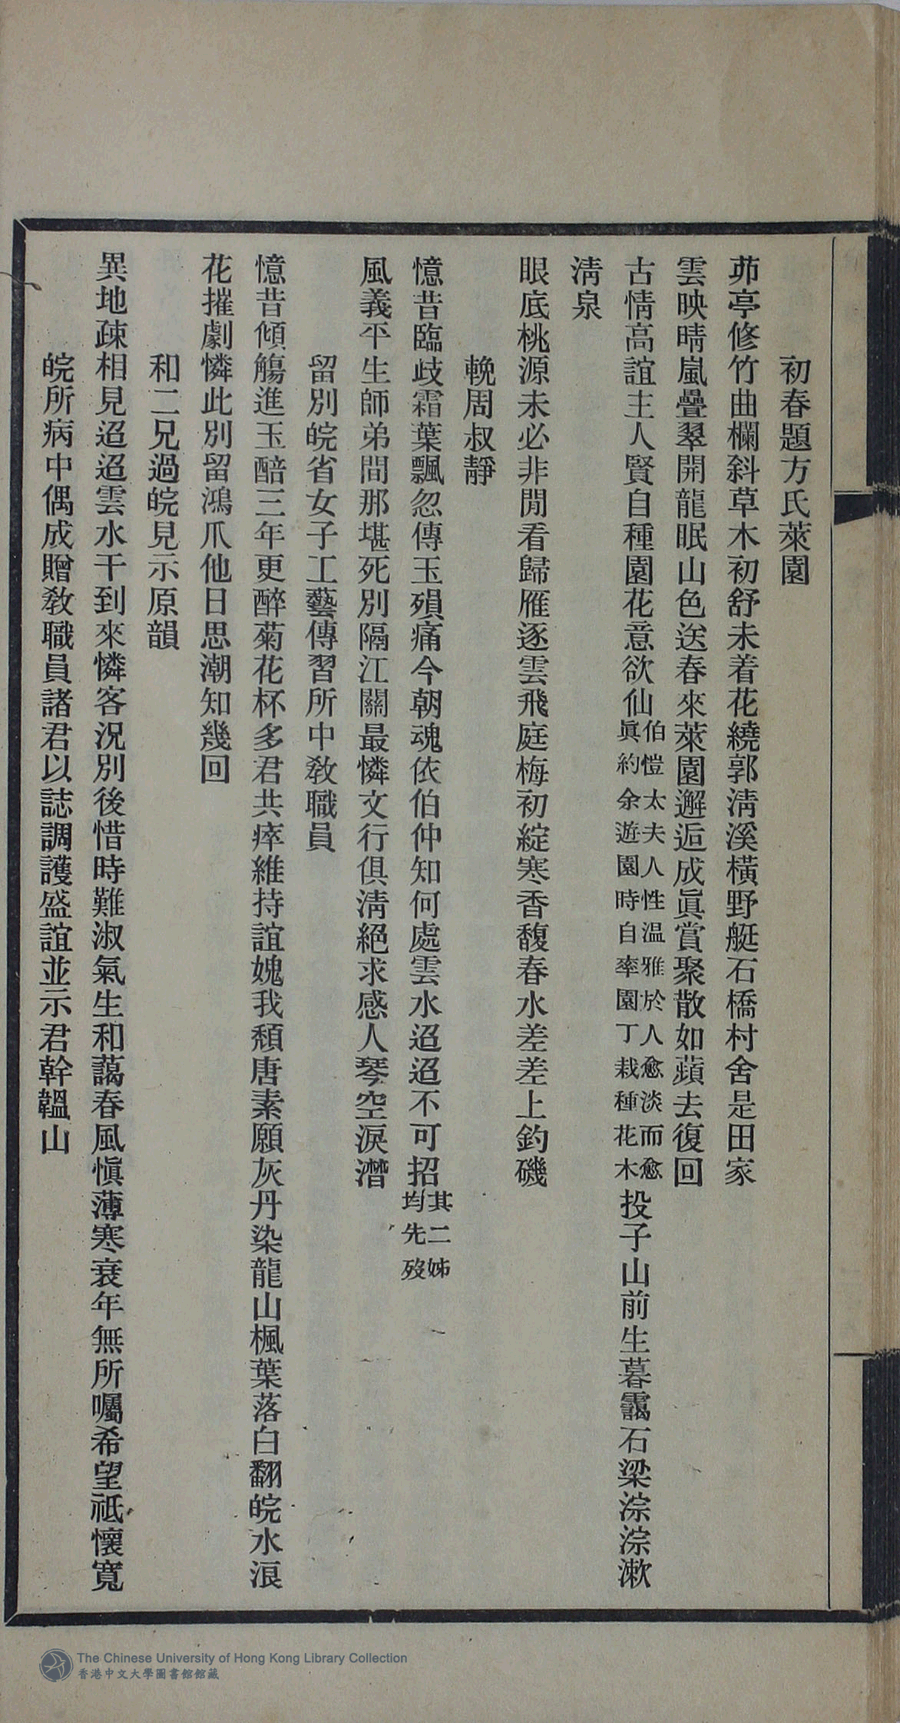 初春題方氏萊園
茆亭修竹曲欄斜草木初舒未着花繞郭淸溪橫野艇石橋村舍是田家
雲映晴嵐疊翠開龍眠山色送春來萊園邂逅成眞賞聚散如蘋去復回
古情高誼主人賢自種園花意欲仙伯愷太夫人性温雅於人愈淡而愈眞約余遊園時自率園丁栽種花木投子山前生暮靄石梁淙淙漱
淸泉
眼底桃源未必非閒看歸雁逐雲飛庭梅初綻寒香馥春水差差上釣磯
輓周叔靜
憶昔臨歧霜葉飄忽傳玉殞痛今朝魂依伯仲知何處雲水迢迢不可招其二姊均先歿
風義平生師弟間那堪死別隔江關最憐文行俱淸絕求感人琴空淚潸
留別皖省女子工藝傳習所中敎職員
憶昔傾觴進玉醅三年更醉菊花杯多君共瘁維持誼媿我頹唐素願灰丹染龍山楓葉落白翻皖水浪
花摧劇憐此別留鴻爪他日思潮知幾回
和二兄過皖見示原韻
異地疎相見迢迢雲水干到來憐客況別後惜時難淑氣生和藹春風愼薄寒衰年無所囑希望祗懷寬
皖所病中偶成贈敎職員諸君以誌調護盛誼並示君幹韞山
The Chinese University of Hong Kong Library Collection
香港中文大學圖書館館藏